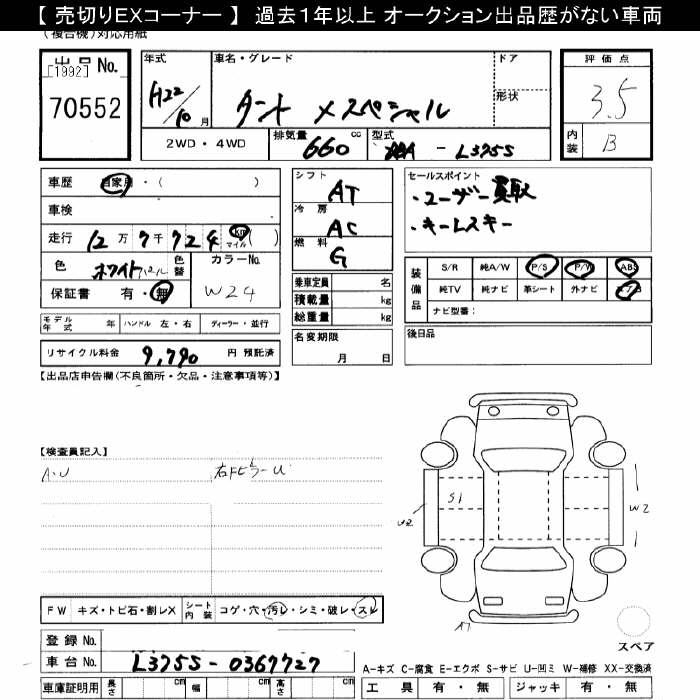 【 売切りEXコーナー 】 過去1年以上 オークション出品歴がない車両
(複合機)対応用紙
出品 No.
[1992]
70552
年式
H22/10 月
車名・グレード
タント Xスペシャル
ドア
形状
評価点
3.5
内装 B
2WD・4WD
排気量 660 cc
型式
DBA - L375S
車歴 自家用・( )
車検
走行 12万7千724 km マイル ( )
色 ホワイトパール 色替
カラーNo. W24
保証書 有・無
シフト AT
冷房 AC
燃料 G
乗車定員 名
積載量 kg
総重量 kg
名変期限
月 日
セールスポイント
・ユーザー買取
・キーレスキー
装備品
S/R 純A/W P/S P/W ABS
純TV 純ナビ 革シート 外ナビ エアB
ナビ型番:
後日品
モデル年式 年 ハンドル 左・右 ディーラー・並行
リサイクル料金 9,790 円 預託済
【出品店申告欄(不良箇所・欠品・注意事項等)】
【検査員記入】
A・U
右Fピラー U
S1
U2
W2
A1
スペア
FW キズ・トビ石・割レX シート内装 コゲ・穴・汚レ・シミ・破レ・スレ
登録 No.
車台 No. L375S - 0367727
車庫証明用 長さ cm 幅 cm 高さ cm
A-キズ C-腐食 E-エクボ S-サビ U-凹ミ W-補修 XX-交換済
工具 有・無 ジャッキ 有・無